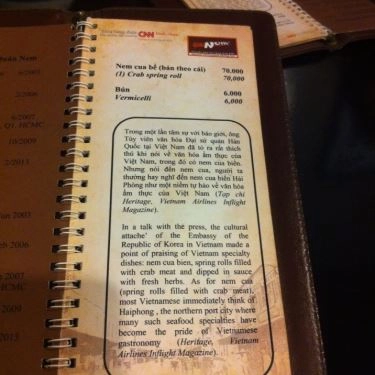 CNN
Nem cua bể (bán theo cái) 70.000
(1) Crab spring roll 70,000
Bún 6.000
Vermicelli 6,000
Trong một lần tâm sự với báo giới, ông
Tùy viên văn hóa Đại sứ quán Hàn
Quốc tại Việt Nam đã tỏ ra rất thích
thú khi nói về văn hóa ẩm thực của
Việt Nam, trong đó có nem cua biển.
Nhưng nói đến nem cua, người ta
thường hay nghĩ đến nem cua biển Hải
Phòng như một niềm tự hào về văn hóa
ẩm thực của Việt Nam (Tạp chí
Heritage, Vietnam Airlines Inflight
Magazine).
In a talk with the press, the cultural
attache' of the Embassy of the
Republic of Korea in Vietnam made a
point of praising of Vietnam specialty
dishes: nem cua bien, spring rolls filled
with crab meat and dipped in sauce
with fresh herbs. As for nem cua
(spring rolls filled with crab meat),
most Vietnamese immediately think of
Haiphong , the northern port city where
many such seafood specialties have
become the pride of Vietnamese
gastronomy (Heritage, Vietnam
Airlines Inflight Magazine).
Quán Nem
6/2003
2/2006
6/2007
Q1. HCMC
10/2009
2/2013
Jun 2003
Feb 2006
HCMC
2009
2013